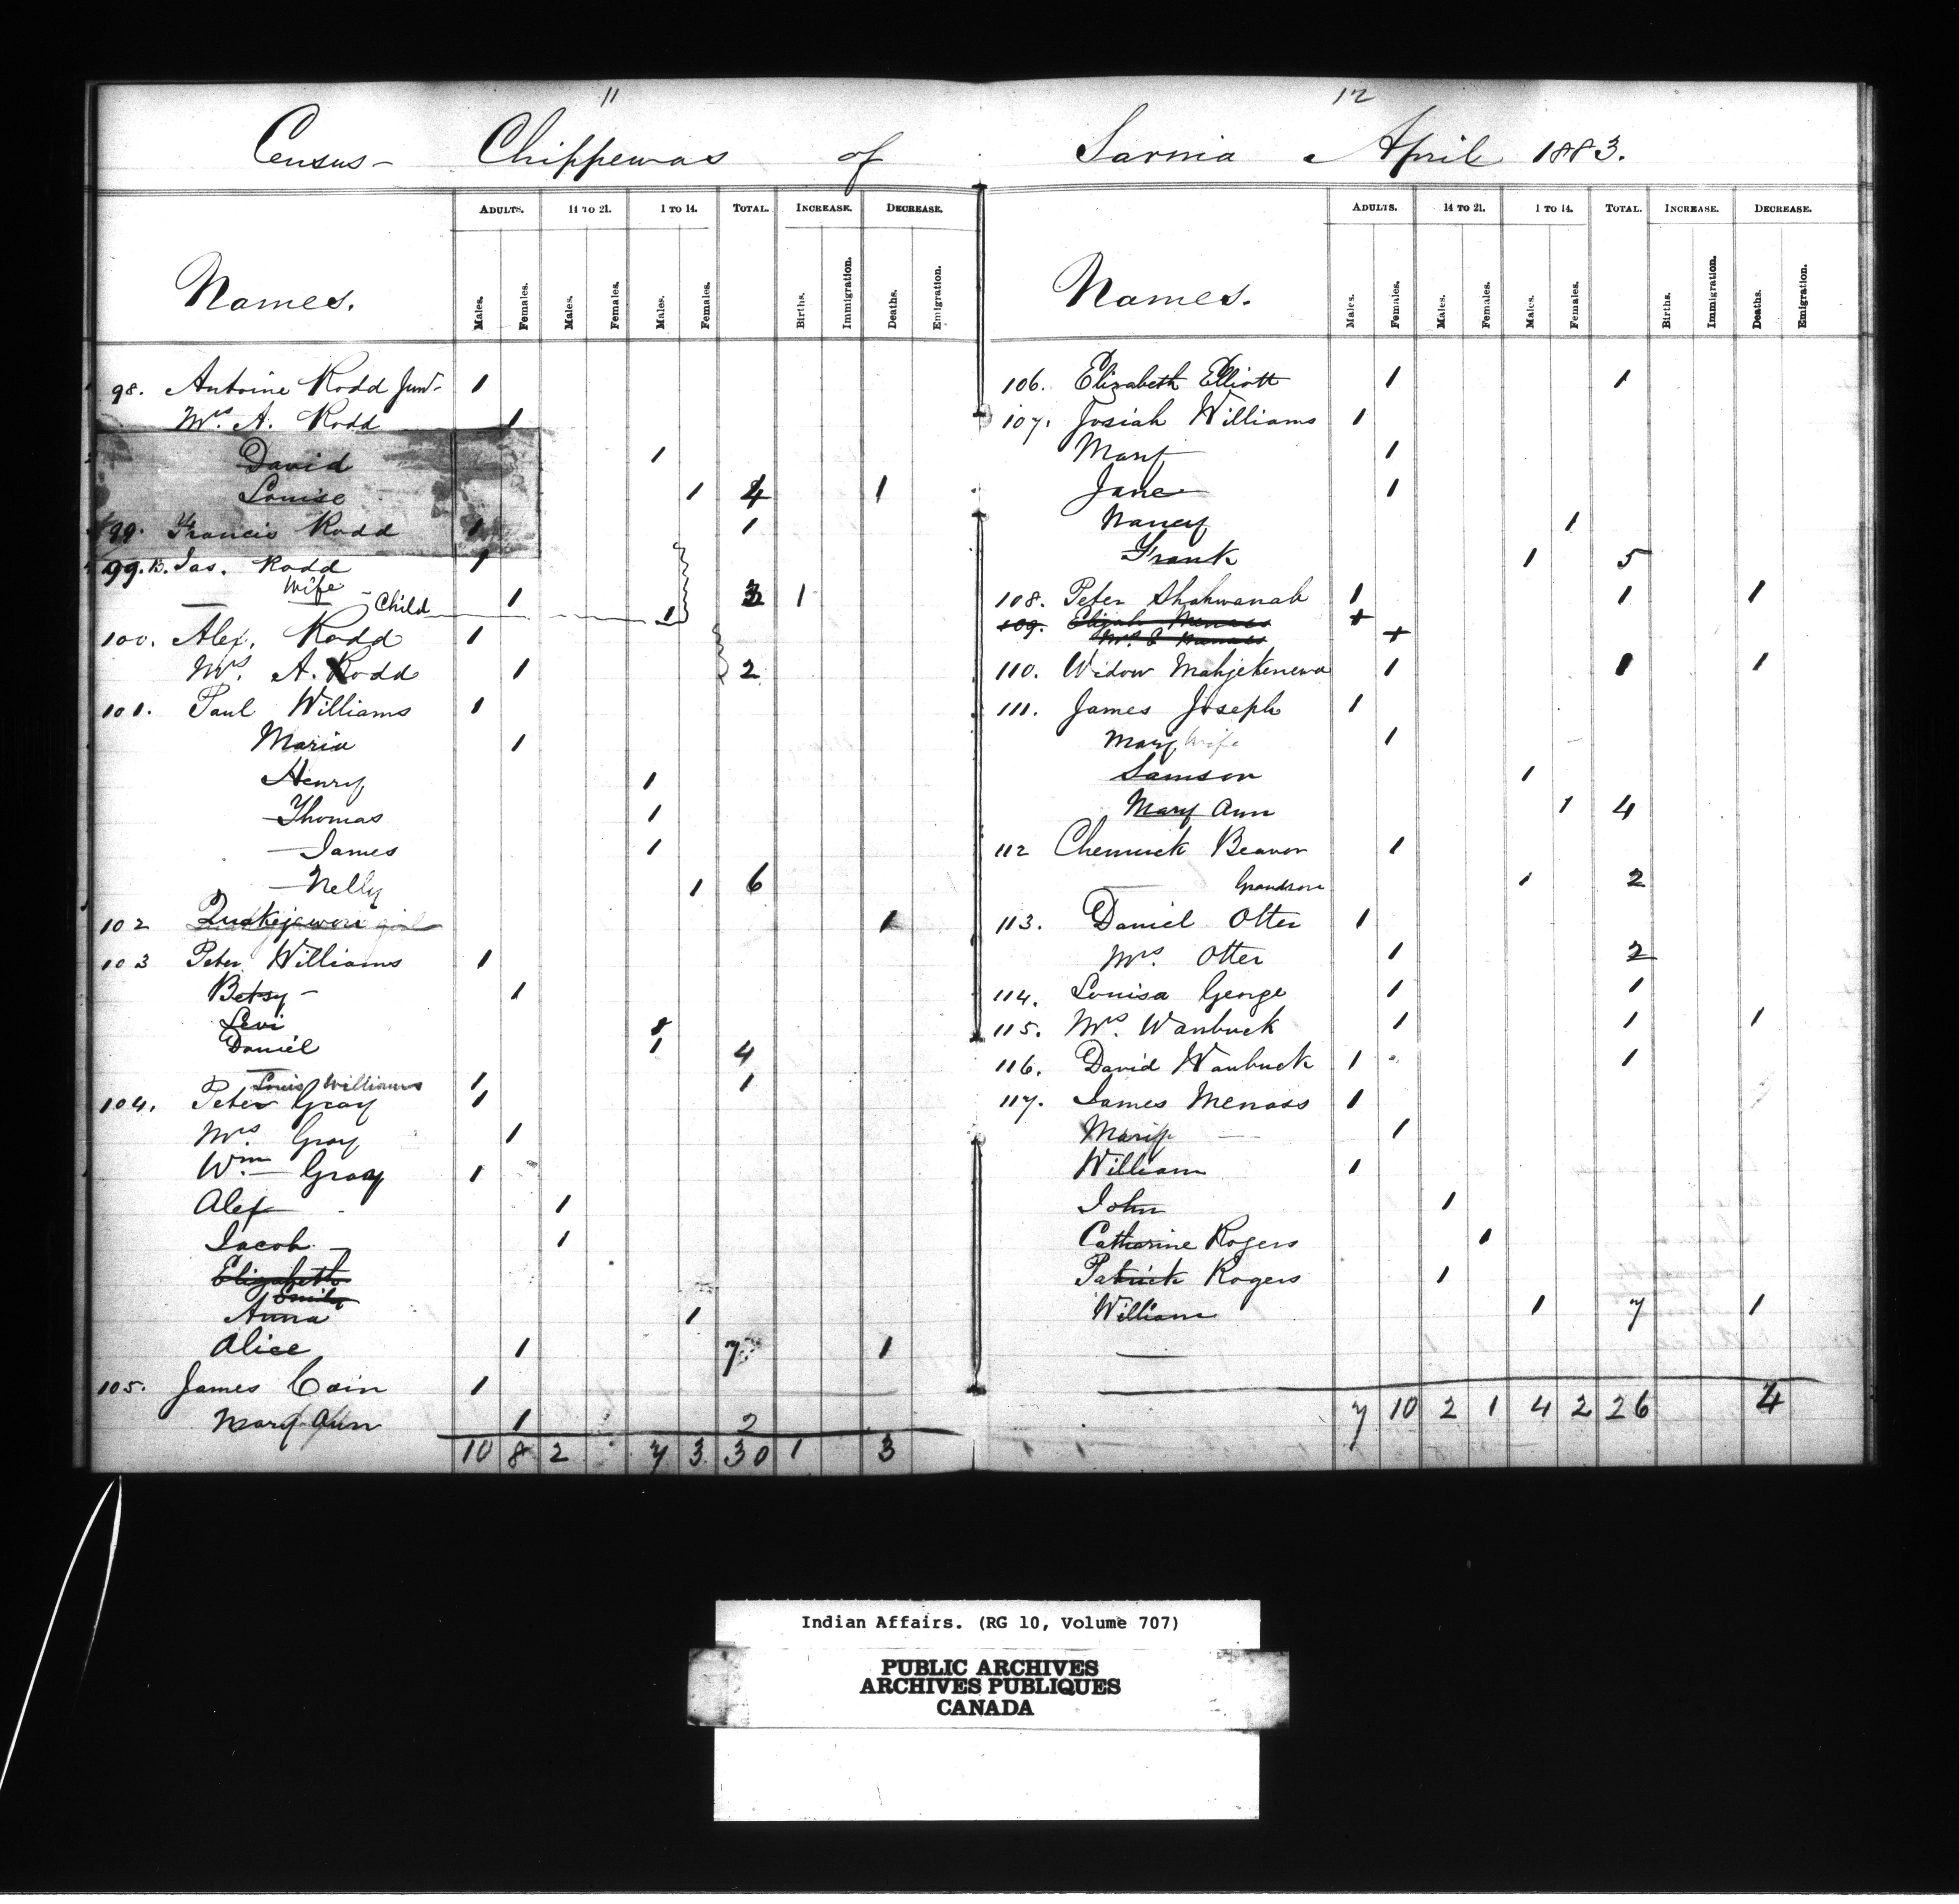 11
Census - Chippewas of
Names.
ADULTS. 14 TO 21. 1 TO 14. TOTAL. INCREASE. DECREASE.
Males. Females. Males. Females. Males. Females. Births. Immigration. Deaths. Emigration.
98. Antoine Rodd Junr 1
Mrs. A. Rodd 1
David 1
Louise 1 4 1
99. Francis Rodd 1 1
99.B. Jas. Rodd 1
Wife 1 3 1
Child 1
100. Alex. Rodd 1
Mrs. A. Rodd 1 2
101. Paul Williams 1
Maria 1
Henry 1
Thomas 1
James 1
Nelly 1 6
102 girl 1
103 Peter Williams 1
Betsy - 1
Levi 1
Daniel 1 4
Louis Williams 1 1
104. Peter Gray 1
Mrs. Gray 1
Wm. Gray 1
Alex 1
Jacob 1
Elizabeth
Emily
Anna 1
Alice 1 7 1
105. James Cain 1
Mary Ann 1 2
10 8 2 7 3 30 1 3
12
Sarnia April 1883.
Names.
ADULTS. 14 TO 21. 1 TO 14. TOTAL. INCREASE. DECREASE.
Males. Females. Males. Females. Males. Females. Births. Immigration. Deaths. Emigration.
106. Elizabeth Elliott 1 1
107. Josiah Williams 1
Mary 1
Jane 1
Nancy 1
Frank 1 5
108. Peter Shahwanah 1 1 1
109. Elijah Menass +
Mrs. E Menass +
110. Widow Mahjekenewa 1 1 1
111. James Joseph 1
Mary Wife 1
Samson 1
Mary Ann 1 4
112 Chemuck Beaver 1
Grandson 1 2
113. Daniel Otter 1
Mrs. Otter 1 2
114. Louisa George 1 1
115. Mrs. Wanbuck 1 1 1
116. David Wanbuck 1 1
117. James Menass 1
Mary 1
William 1
John 1
Catharine Rogers 1
Patrick Rogers 1
William 1 7 1
7 10 2 1 4 2 26 4
Indian Affairs. (RG 10, Volume 707)
PUBLIC ARCHIVES
ARCHIVES PUBLIQUES
CANADA